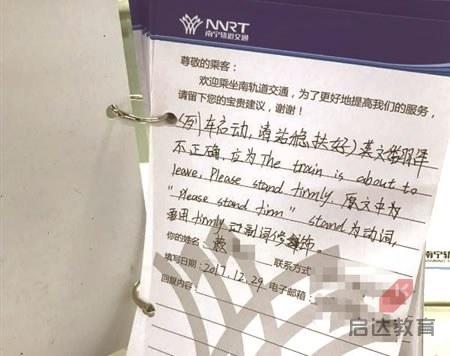 NNRT
南宁轨道交通
尊敬的乘客：
欢迎乘坐南轨道交通，为了更好地提高我们的服务，
请留下您的宝贵建议，谢谢！
（列车启动，请站稳扶好）英文翻译
不正确，应为The train is about to
leave, Please stand firmly. 原文中为
"Please stand firm" stand为动词，
要用firmly 副词修饰
您的姓名：
联系方式
填写日期：2017.12.29
电子邮箱：
回复内容：
南宁
启达教育